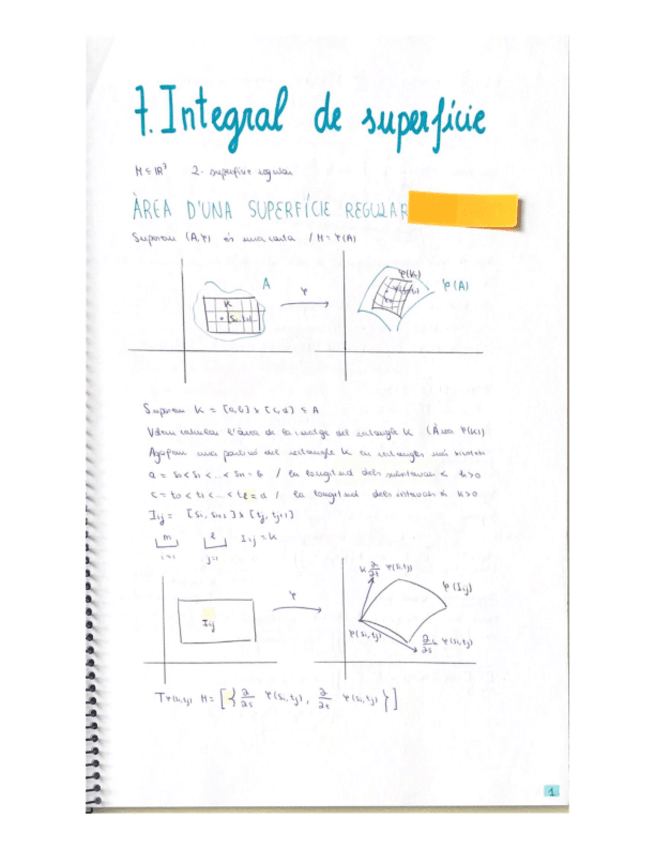 7. Integral de superfície
M ⊆ ℝ³ 2-superfície regular
ÀREA D'UNA SUPERFÍCIE REGULAR
Suposem (A,φ) és una carta / M = φ(A)
A
K
φ
φ(K)
φ(A)
Suposem K = [a,b] x [c,d] ⊆ A
Volem calcular l'àrea de la imatge del rectangle K (Àrea φ(K))
Agafem una partició del rectangle K en rectangles més
a = s₀ < s₁ < ... < sₘ = b / la longitud dels h>0
c = t₀ < t₁ < ... < tₗ = d / la longitud dels intervals k>0
Iᵢⱼ = [sᵢ, sᵢ₊₁] x [tⱼ, tⱼ₊₁]
m l Iᵢⱼ = K
i=1 j=1
Iᵢⱼ
φ
k ∂/∂t φ(sᵢ,tⱼ)
φ(Iᵢⱼ)
φ(sᵢ,tⱼ)
∂/∂s φ(sᵢ,tⱼ)
Tφ(sᵢ,tⱼ) M = [{ ∂/∂s φ(sᵢ,tⱼ), ∂/∂t φ(sᵢ,tⱼ) }]
1